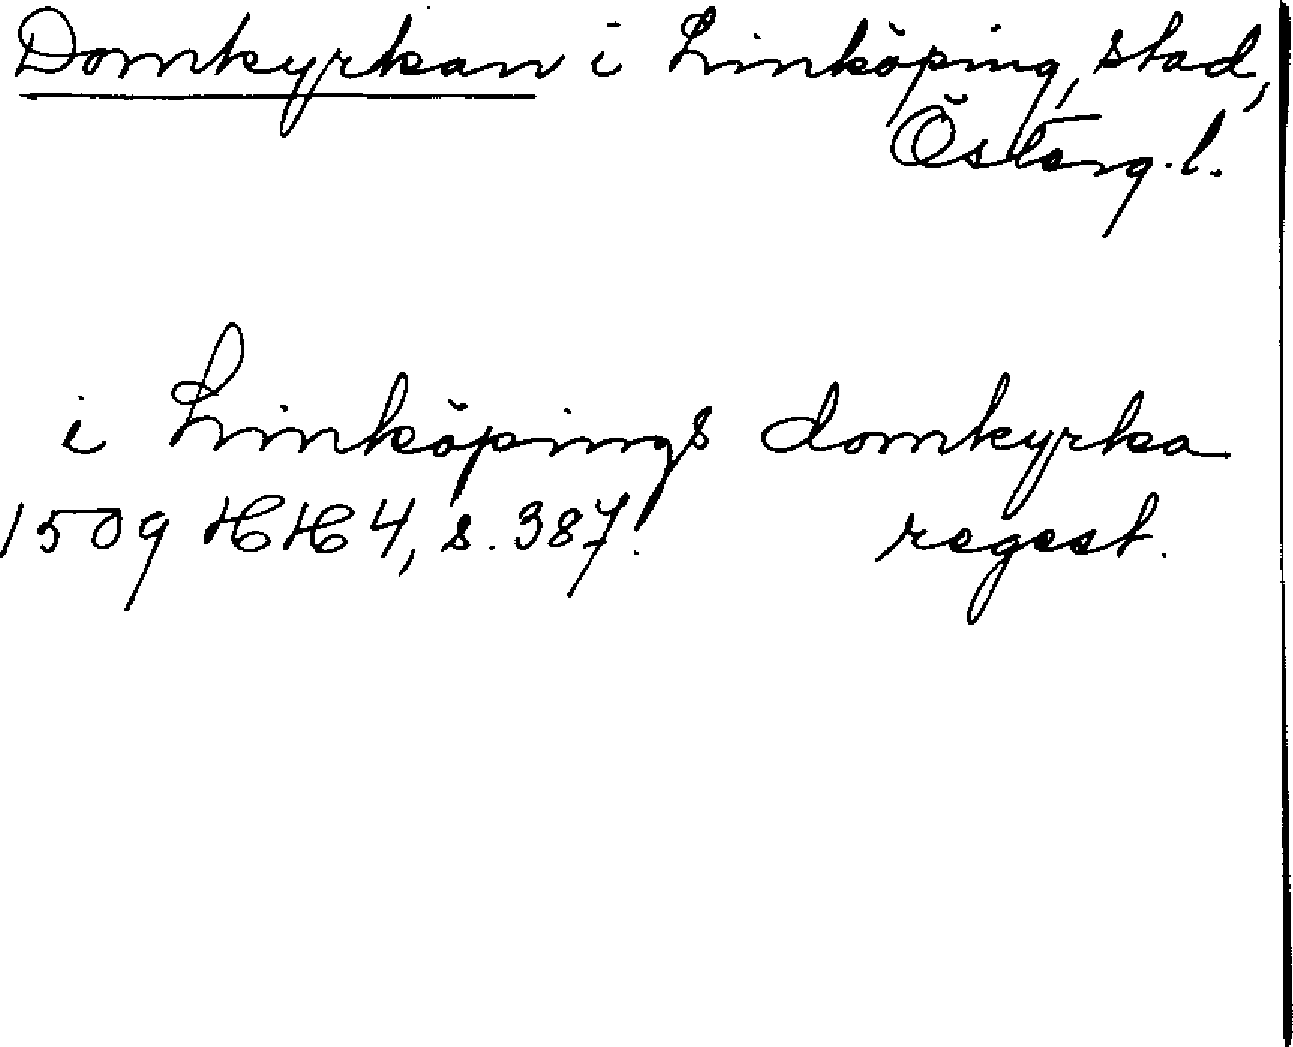 Domkyrkan i Linköping, stad,
Österg. l.
i Linköpings domkyrka
1509 HH 4, s. 387. regest.